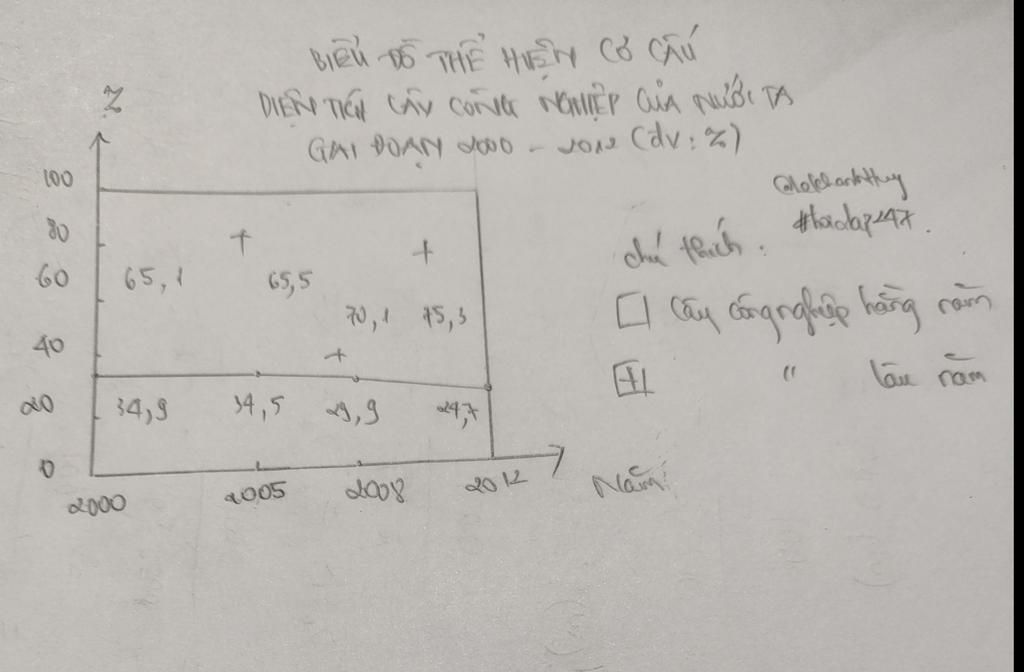 BIỂU ĐỒ THỂ HIỆN CƠ CẤU
DIỆN TÍCH CÂY CÔNG NGHIỆP CỦA NƯỚC TA
GAI ĐOẠN 2000 - 2012 (đv: %)
%
100
80
60
40
20
0
65,1
65,5
70,1
75,3
34,9
34,5
29,9
24,7
2000
2005
2008
2012
Năm
#hoidap247.
chú thích:
Cây công nghiệp hằng năm
" lâu năm